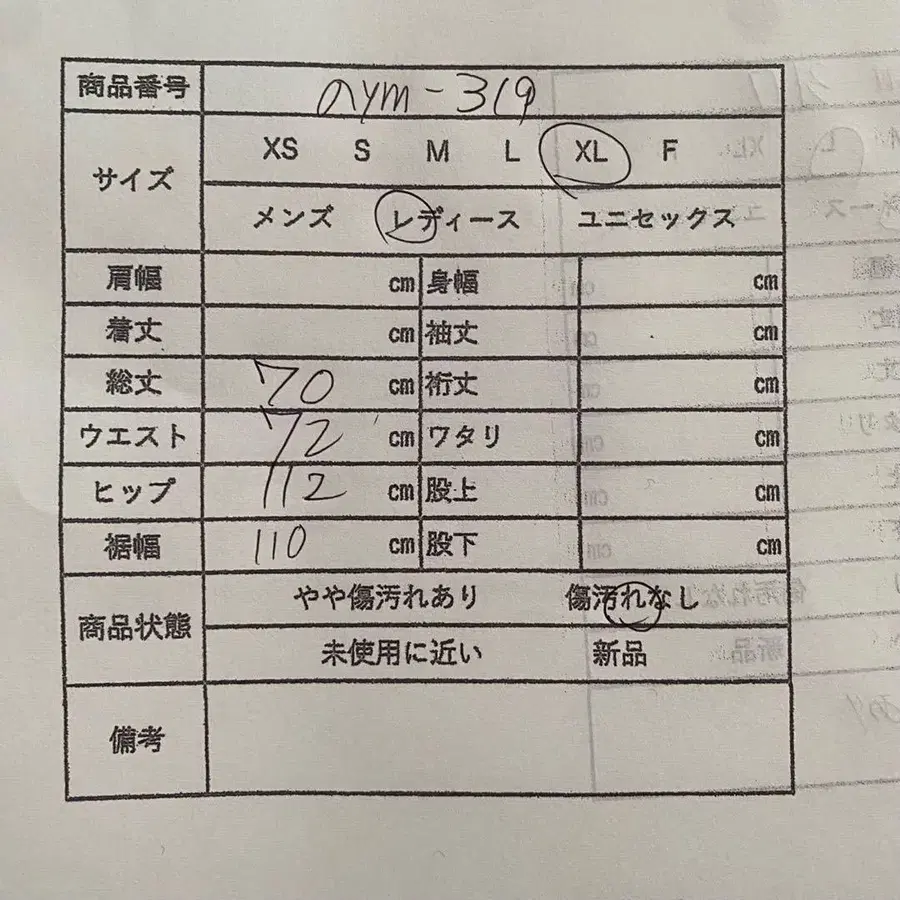 商品番号 aym-319
サイズ XS S M L XL F
メンズ レディース ユニセックス
肩幅 cm 身幅 cm
着丈 cm 袖丈 cm
総丈 70 cm 裄丈 cm
ウエスト 72 cm ワタリ cm
ヒップ 112 cm 股上 cm
裾幅 110 cm 股下 cm
商品状態 やや傷汚れあり 傷汚れなし
未使用に近い 新品
備考